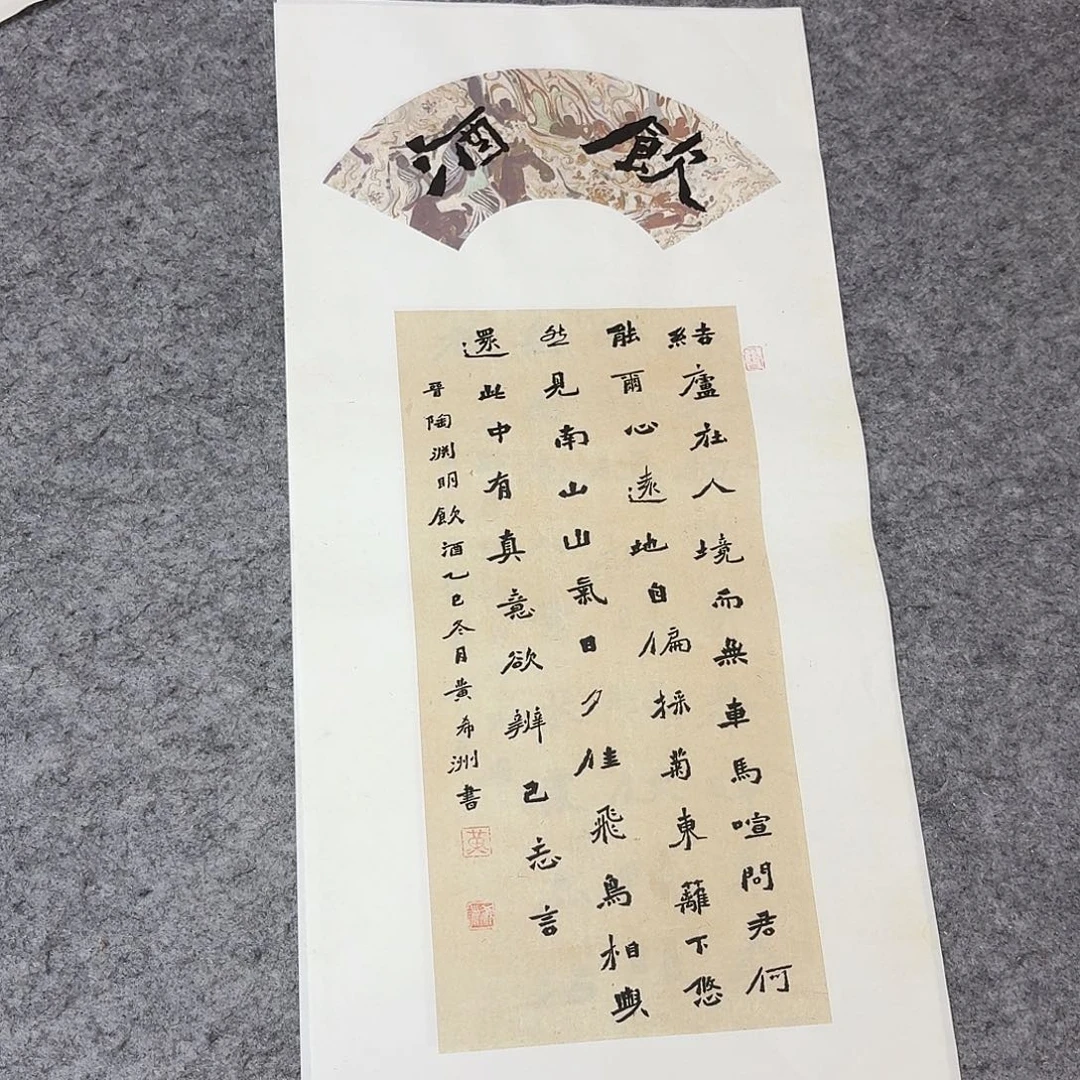 飲酒
結廬在人境而無車馬喧問君何
能爾心遠地自偏採菊東籬下悠
然見南山山氣日夕佳飛鳥相與
還此中有真意欲辨已忘言
晉陶渊明飲酒乙巳冬月黄希洲書
黄